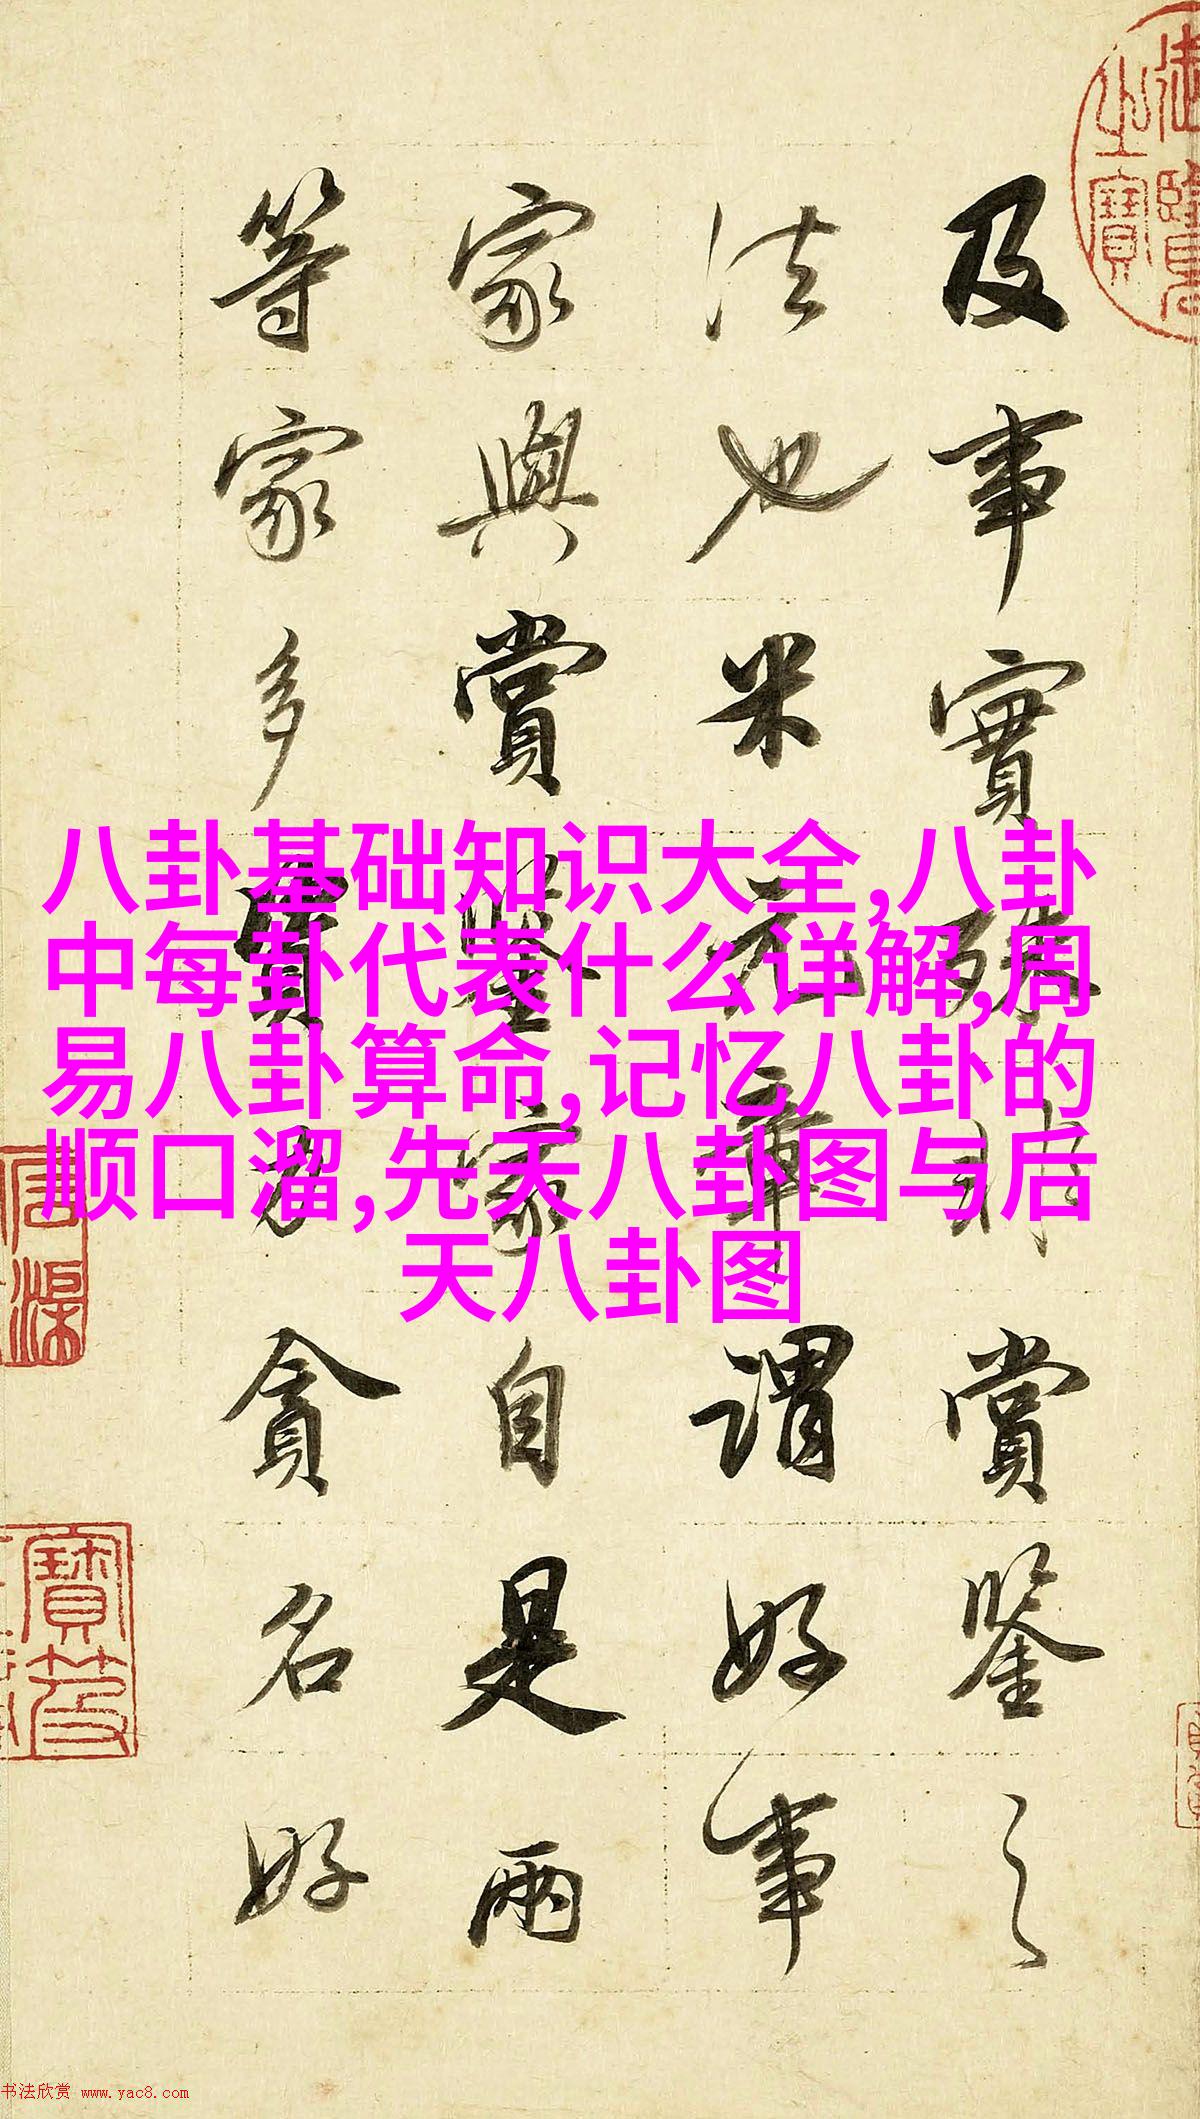 及事實殊賞鑒之
法也米元章謂好事
家與賞鑒家自是兩
等家多力貪名好
八卦基础知识大全,八卦
中每卦代表什么详解,周
易八卦算命,记忆八卦的
顺口溜,先天八卦图与后
天八卦图
书法欣赏 www.yac8.com